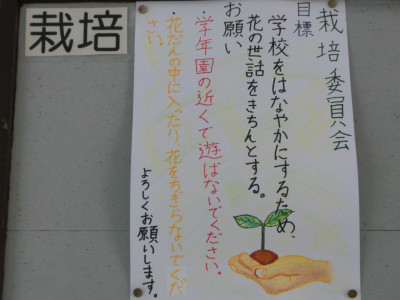 栽培
栽培委員会
目標
学校をはなやかにするため、
花の世話をきちんとする。
お願い
・学年園の近くで遊ばないでください。
・花だんの中に入ったり、花をちぎらないでくだ
さい。
よろしくお願いします。